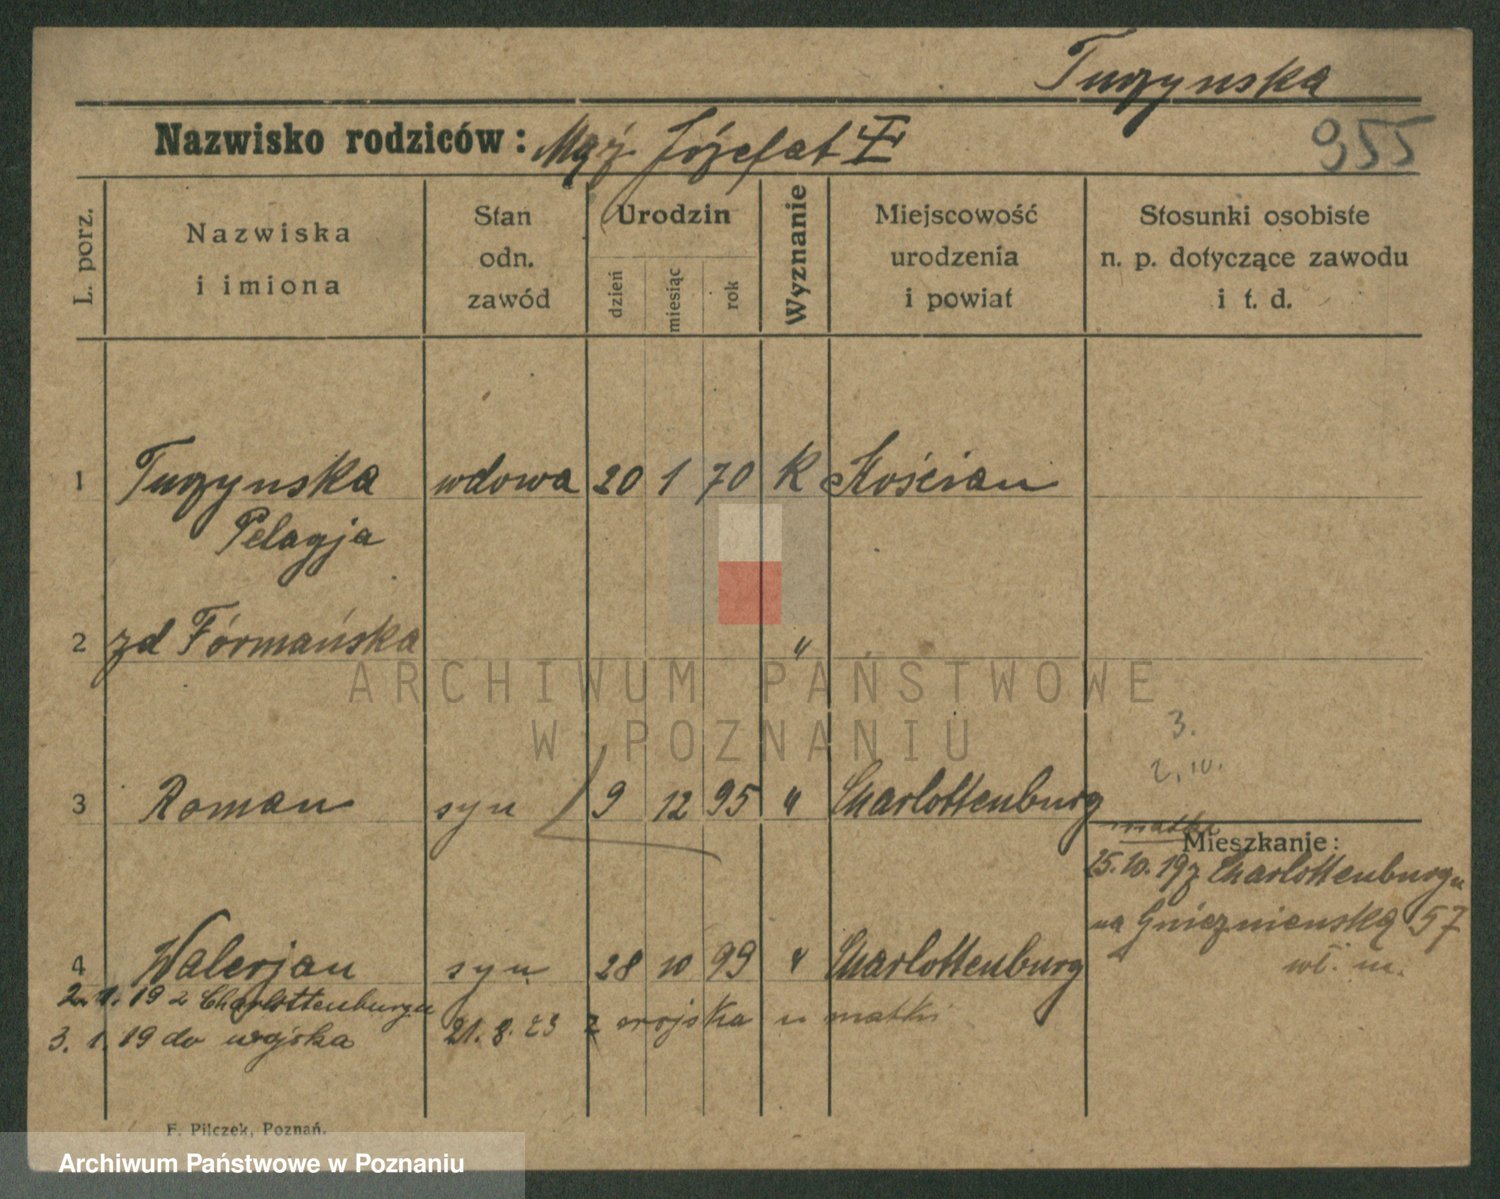 Tuczynska
Nazwisko rodziców: Mąż Józefat
955
L. porz.
Nazwiska
i imiona
Stan
odn.
zawód
Urodzin
dzień
miesiąc
rok
Wyznanie
Miejscowość
urodzenia
i powiat
Stosunki osobiste
n. p. dotyczące zawodu
i t. d.
1 Tuczynska wdowa 20 1 70 K Kościan
Pelagja
2 zd Formańska "
3.
2, 10.
3 Roman syn 9 12 95 " Charlottenburg
matka
Mieszkanie:
25.10.19 z Charlottenburgu
na Gnieźnienską 57
wł. m.
4 Walerjan syn 28 10 99 " Charlottenburg
2. 1. 19 z Charlottenburgu
3. 1. 19 do wojska 21. 8. 23 z wojska u matki
F. Pilczek, Poznań.
ARCHIWUM PAŃSTWOWE
W POZNANIU
Archiwum Państwowe w Poznaniu